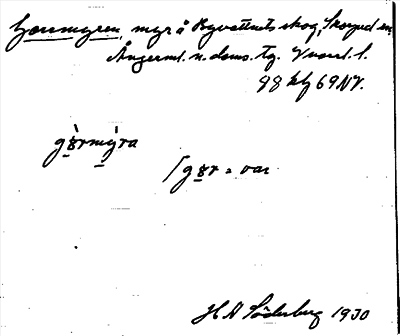 Gormyren, myr å Byvattnets skog, Skorped sn,
Ångerml. n. doms. tg. V norrl. l.
98 kbf 69 NV.
gòrmýra
/gor = var
H A Söderberg 1930